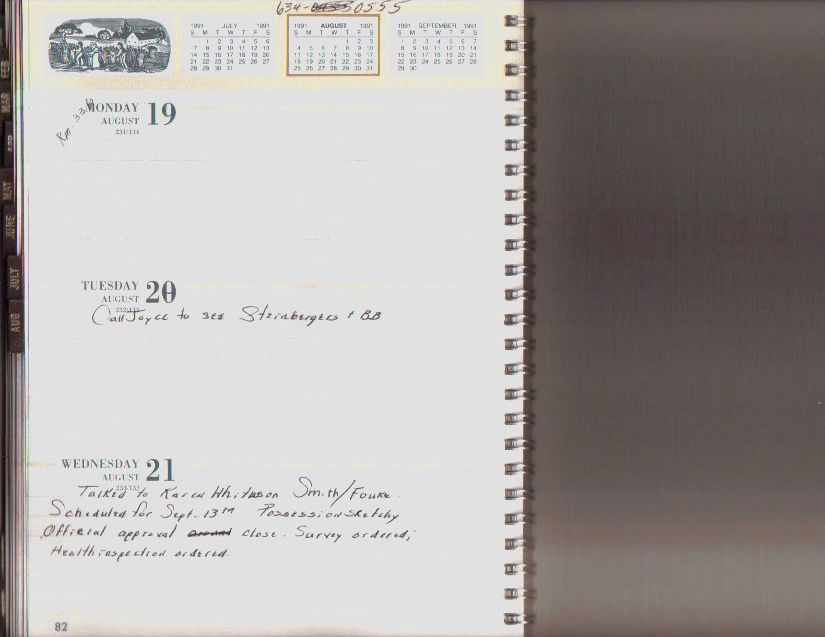 634-0555
1991 JULY 1991
S M T W T F S
1 2 3 4 5 6
7 8 9 10 11 12 13
14 15 16 17 18 19 20
21 22 23 24 25 26 27
28 29 30 31
1991 AUGUST 1991
S M T W T F S
1 2 3
4 5 6 7 8 9 10
11 12 13 14 15 16 17
18 19 20 21 22 23 24
25 26 27 28 29 30 31
1991 SEPTEMBER 1991
S M T W T F S
1 2 3 4 5 6 7
8 9 10 11 12 13 14
15 16 17 18 19 20 21
22 23 24 25 26 27 28
29 30
FEB
MAR
APR
MAY
JUNE
JULY
AUG
Rm 336
MONDAY 19
AUGUST
231/134
TUESDAY 20
AUGUST
232/133
Call Joyce to see Steinbergers + BB
WEDNESDAY 21
AUGUST
233/132
Talked to Karen Whitman on Smith/Fouke.
Scheduled for Sept. 13th Possession sketchy
Official approval around close. Survey ordered;
Health inspection ordered.
82